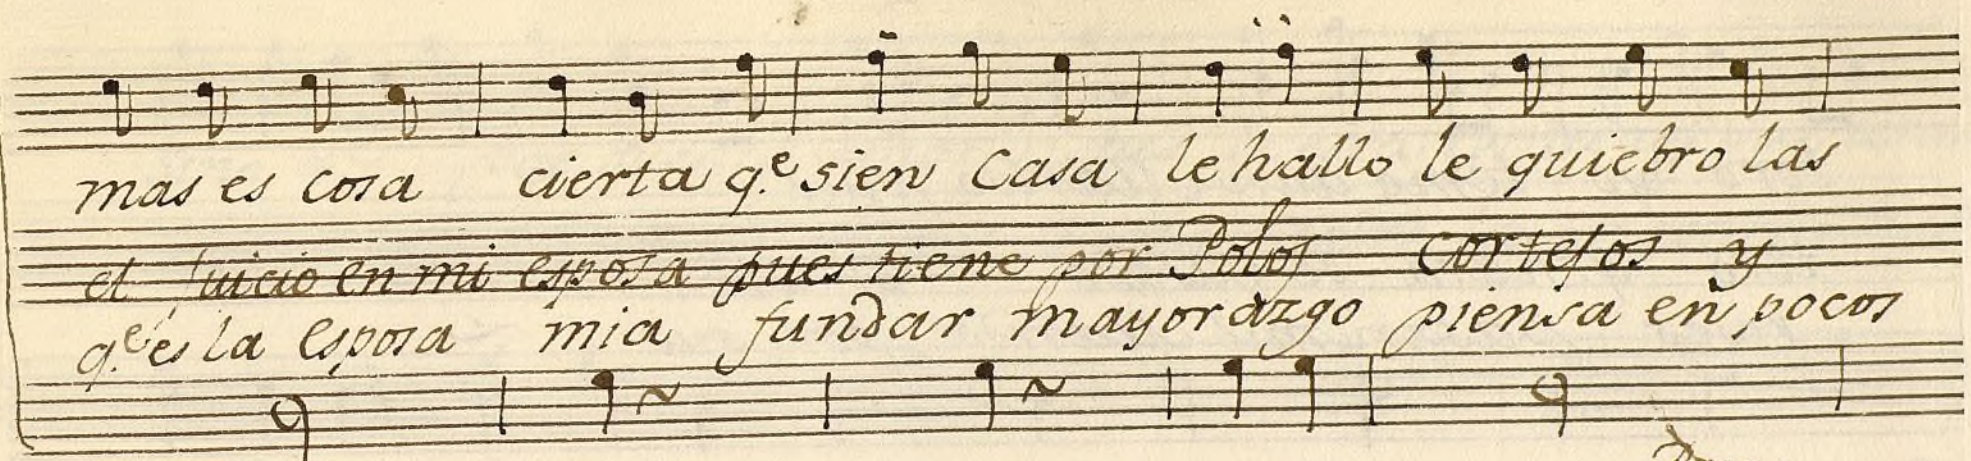 mas es cosa cierta q.e sien Casa le hallo le quiebro las
el juicio en mi esposa pues tiene por Polos cortejos y
q.e es la esposa mia fundar mayorazgo piensa en pocos